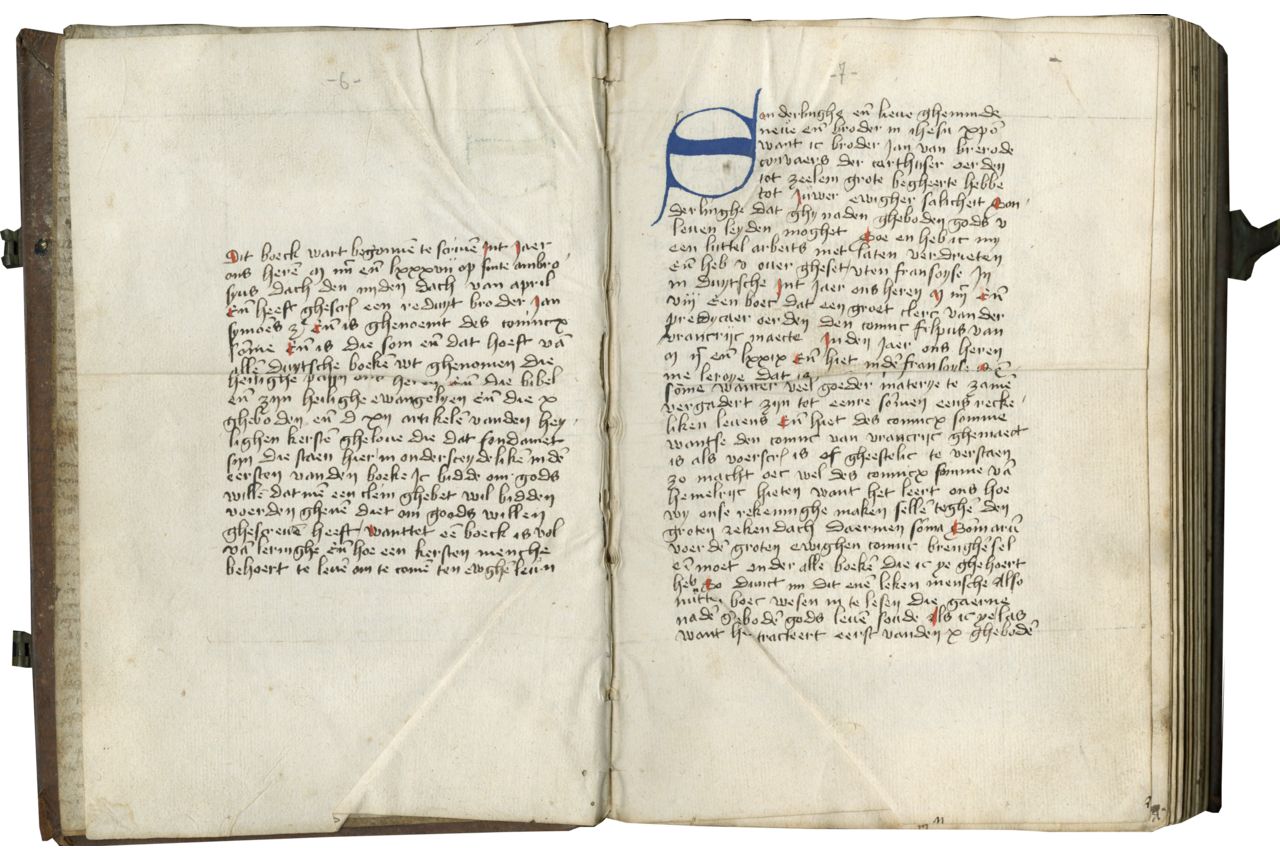 -6-
Dit boeck wart begonnē te scrivē Int Jaer
ons herē M IIIIc en̄ lxxxvij op sinte ambro
syus dach den iiijden dach van april
En̄ heeft ghescr̄ een reduyt broder Jan
symoēs z̄ En̄ is ghenoemt des conincx
sōme En̄ is die som en̄ dat hoeft vā
allē duytsche boekē wt ghenomen die
heilighe ons herē en̄ die bibel
en̄ zijn heilighe ewangelyen en̄ die x
gheboden en̄ d xij artikelē vanden hey
lighen kerstē gheloue die dat fondamēt
sijn die staen hier in ondersceydelikē indē
eersten vanden boeke Ic bidde om gods
wille dat mē een clein ghebet wil bidden
voer den ghenē diet om goods willen
ghescreuē heeft wanttet eē boeck is vol
vā leringhe en̄ hoe een kersten mensche
behoert te leuē om te comē ten ewighē leuen
-7-
Sonderlinghe en̄ lieue gheminde
neue en̄ broder in ihesu xpō
want ic broder Jan van brerode
convaers der carthuser oerden
tot zeelem grote begheerte hebbe
tot Juwer ewigher salicheit Son
derlinghe dat ghy naden gheboden gods v
leuen leyden moghet Soe en heb ic my
een luttel arbeits niet laten verdrieten
En̄ heb v ouer gheset vten fransoyse In
in duytsche Int Jaer ons heren M IIIIc En̄
viij Een boec dat een groet clerc van der
predycaer oerden den coninc filpus van
vrancrijc maecte Inden Jaer ons heren
M IIc en̄ lxxix En̄ hiet indē fransoyse
me leroye dat is
sōme wanter veel goeder materye te zamē
vergadert zijn tot eenre sōmen eens recke
liken leuens En̄ hiet des conincx somme
wantse den coninc van vrancrijc ghemaect
is als voerscr̄ is of gheestelic te verstaen
zo macht oec wel des conincx somme vā
hemelrijc hieten want het leert ons hoe
wy onse rekeninghe maken sellē teghē den
groten rekendach daermen
voer dē groten ewighen coninc brenghē sel
eñ moet onder alle boekē die ic ye ghehoert
heb So dunct mi dit enē leken mensche Also
nutte boec wesen in te lesen die gaerne
nadē Ghebodē gods leuē soude als ic ye las
want het tracteert eerst vanden x ghebodē